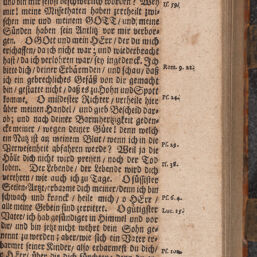 und bin mir selbst beschwerlich worden? Weh
mir! meine Missethaten haben zertheilt zwi-
schen mir und meinem GOTT / und meine
Sünden haben sein Antliz vor mir verbor-
gen. O GOtt und mein HErr / der du mich
erschaffen / da ich nicht war; und wiederbracht
hast / da ich verlohren war / sey ingedenck. Ich
bitte dich / deiner Erbärmden / und schau / daß
ich ein gebrechliches Gefäß von dir gemacht
bin / gestatte nicht / daß es zu Hohn und Spott
komme. O mildester Richter / verheile den
über meinen Handel / und gieb Bescheid dar-
ob; und nach deiner Barmhertzigkeit geden-
cke meiner / wegen deiner Güte! denn welch
ein Nutz ist an meinem Blut / wenn ich in die
Verwesenheit abfahren werde? Weil ja die
Höle dich nicht wird preisen / noch der Tod
loben. Der Lebende / der Lebende wird dich
verehren / wie auch ich zu Tage. O süssester
Seelen-Artzt / erbarme dich meiner / denn ich bin
schwach und kranck / heile mich / o HErr /
alle meine Gebein sind zerrittet. O gütigster
Vater / ich hab gesündiget in Himmel und vor
dir / und bin jetzt nicht wehrt dein Sohn ge-
nennt zu werden; aber / wie sich ein Vatter er-
barmet seiner Kinder / also erbarmest du dich /
Jf. 59.
Rom. 9. 21.
Pf. 24.
Pf. 29.
Jf. 38.
Pf. 6. 4.
Luc. 15.
Pf. 102.